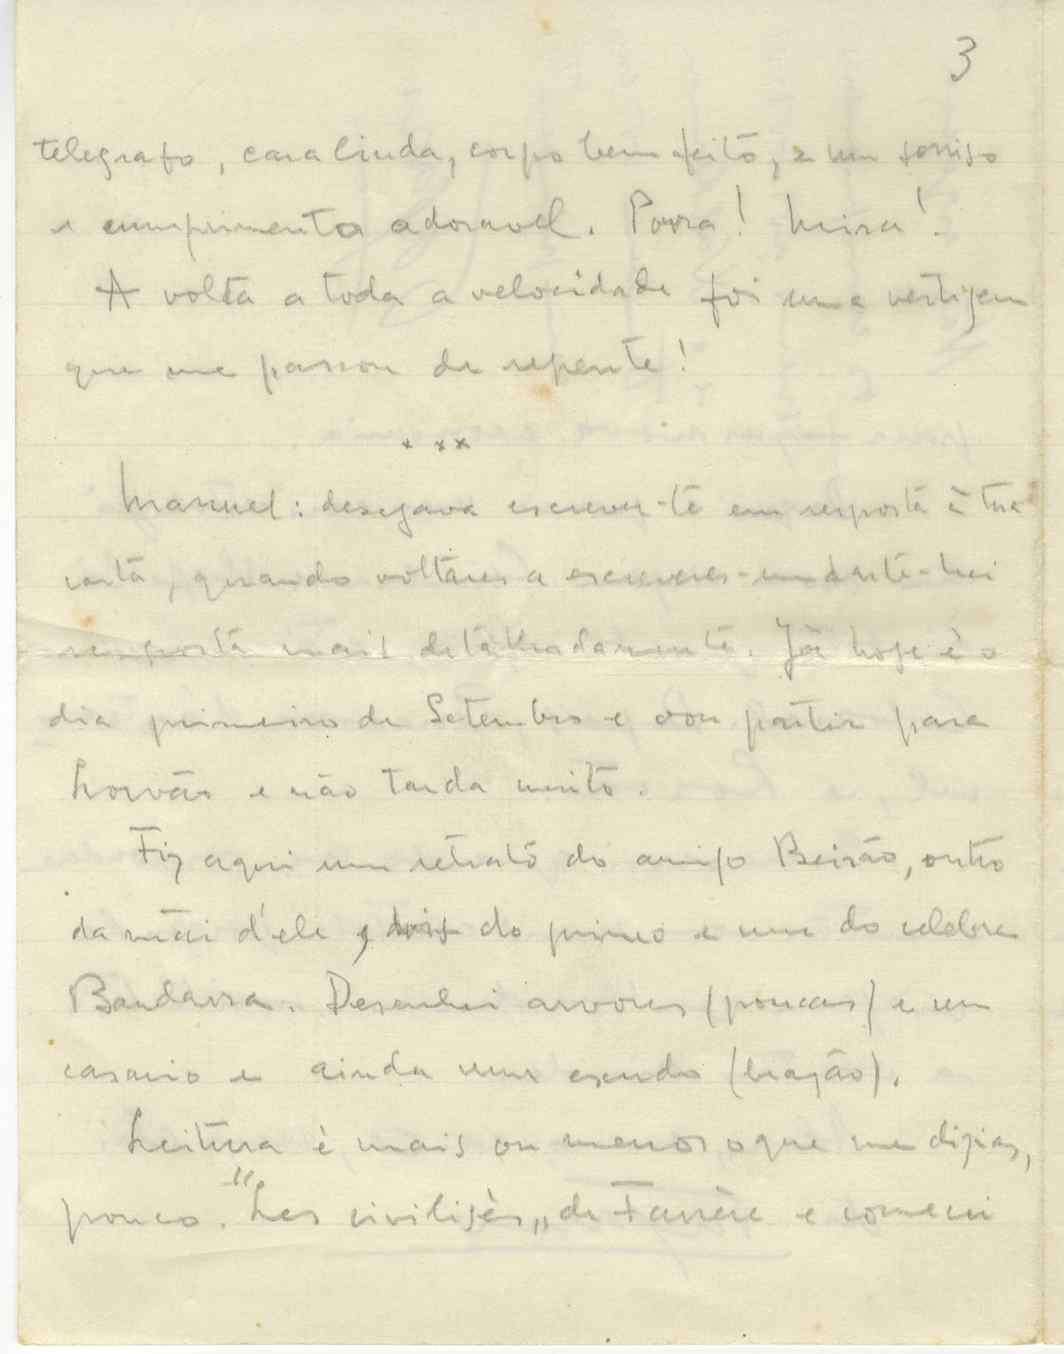 3
telegrafo, cara linda, corpo bem feito, e um sorriso
e cumprimento adoravel. Porra! Meira!
A volta a toda a velocidade foi uma vertigem
que me passou de repente!
* * *
Manuel: desejava escrever-te em resposta à tua
carta, quando voltares a escreveres-me darte-hei
resposta mais detalhadamente. Já hoje è o
dia primeiro de Setembro e vou partir para
Lorvão e não tarda muito.
Fiz aqui um retrato do amigo Beirão, outro
da mãi d'ele, dois do primo e um do celebre
Bandarra. Desenhei arvores (poucas) e um
casario e ainda um escudo (brazão).
Leitura è mais ou menos o que me dizias,
pouco. "Les civilizés„ de Farrère e comecei